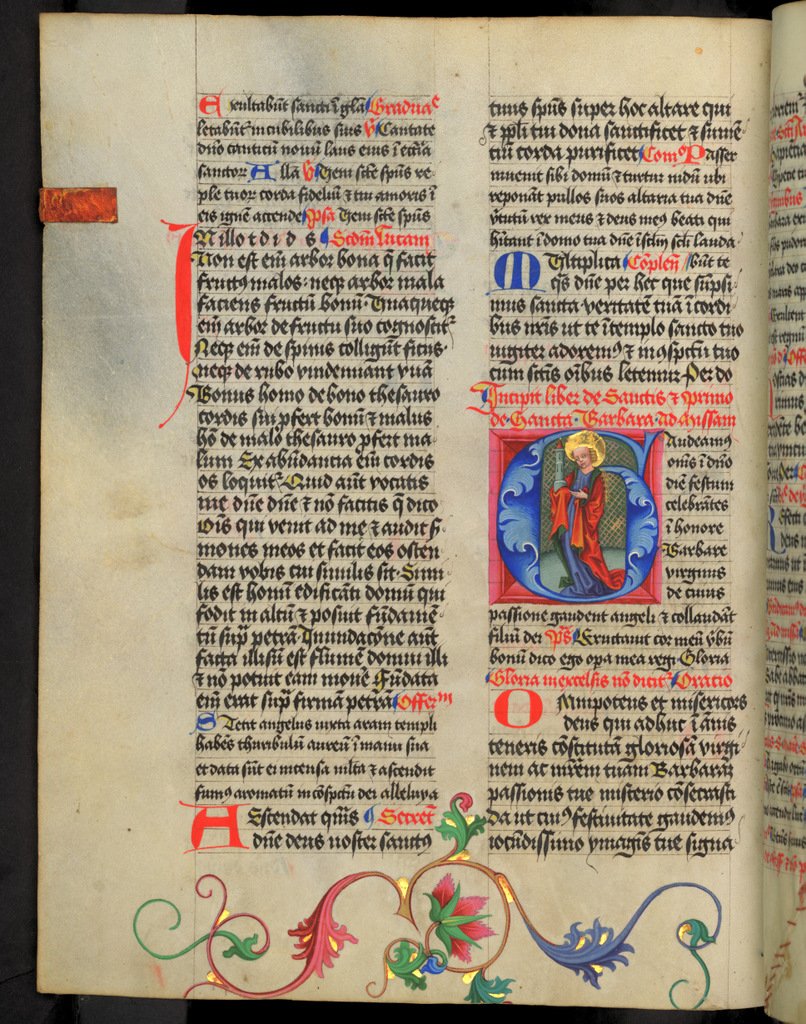 Exultabūt sancti ī gl̄a Gradua͛
letabūt᷑ in cubilibus suis V̓ Cantate
dn̄o canticū nouū laus eius ī ecc̄ia
sanctor Alla V̓ Veni sc̄te sp̄us re
ple tuor corda fideliū ⁊ tui amoris ī
eis ignē accende p̄sa Veni sc̄te sp̄us
IN illo t d i d s Scd̄m Lucam
Non est em̄ arbor bona q̄ facit
fructꝰ malos · neqꝫ arbor mala
faciens fructū bonū · Vnaqueqꝫ
em̄ arbor de fructu suo cognoscit᷑
Neqꝫ em̄ de spinis colligūt ficus ·
neqꝫ de rubo vindemiant vuā
Bonus homo de bono thesauro
cordis sui ꝓfert bonū ⁊ malus
hō de malo thesauro ꝓfert ma
lum Ex abūdantia em̄ cordis
os loquit᷑ · Quid aūt vocatis
me dn̄e dn̄e ⁊ nō facitis q̄ dico
Oīs qui venit ad me ⁊ audit s̄
mones meos et facit eos osten
dam vobis cui similis sit · Simi
lis est homini edificāti domū qui
fodit in altū ⁊ posuit fūdamē
tū suꝑ petrā · Inundacōne aūt
facta illisū est flumē domui illi
⁊ nō potuit eam mouē Fūdata
em̄ erat suꝑ firmam petrā Offerᵐ
Stetit angelus iuxta aram templi
habēs thuribulū aureū ī manu sua
et data sūt ei incensa ml̄ta ⁊ ascendit
fumꝰ aromatū in cōspc̄tu dei alleluya
AScendat qm̄s Secret̄
dn̄e deus noster sanctꝰ
tuus sp̄us super hoc altare qui
⁊ pp̄li tui dona sanctificet ⁊ sumē
tiū corda purificet Com̄ Passer
inuenit sibi domū ⁊ turtur nidū ubi
reponāt pullos suos altaria tua dn̄e
v̓tutū rex meus ⁊ deus meꝰ beati qui
hītant ī domo tua dn̄e ī sc̄lm sc̄li lauda
MVltiplica Cōplen̄ būt te
q̄s dn̄e per hec que sūpsi
mus sancta veritatē tuā ī cordi
bus nr̄is ut te ī templo sancto tuo
iugiter adoremꝰ ⁊ in cōspc̄tu tuo
cum sc̄tis oībus letemur · Per do
Incipit liber de Sanctis ⁊ primo
de Sancta Barbara ad missam
GAudeamꝰ
om̄s ī dn̄o
diē festum
celebrātes
ī honore
Barbare
virginis
de cuius
passione gaudent angeli ⁊ collaudāt
filiū dei p̄s Eructauit cor meū v̓bū
bonū dico ego opa mea regi · Gloria
Gloria in excelsis nō dicit᷑ Oratio
OMnipotens et misericors
deus qui adhuc ī annis
teneris cōstitutā gloriosā virgi
nem ac mr̄em tuam Barbarā
passionis tue misterio cōsecrasti
da ut cuiꝰ festiuitate gaudemꝰ
iocūdissimo ymaginis tue signa